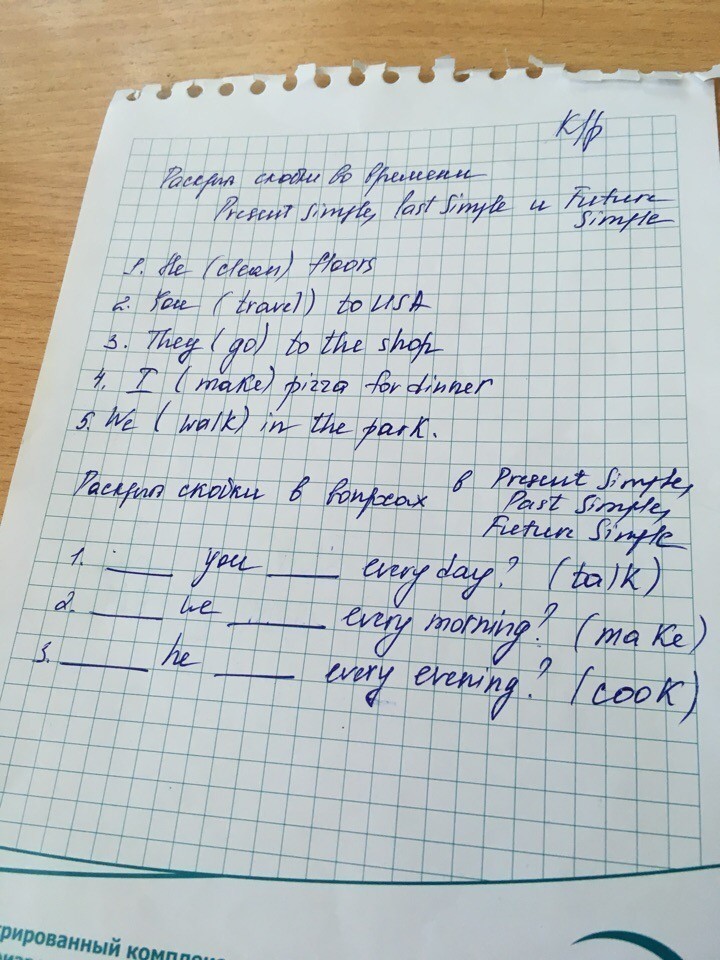 К/р
Раскрыть скобки во времени
Present Simple, Past Simple и Future
Simple
1. He (clean) floors
2. You (travel) to USA
3. They (go) to the shop
4. I (make) pizza for dinner
5. We (walk) in the park.
Раскрыть скобки в вопросах в Present Simple,
Past Simple,
Future Simple
1. ____ you ____ every day? (talk)
2. ____ we ____ every morning? (make)
3. ____ he ____ every evening? (cook)